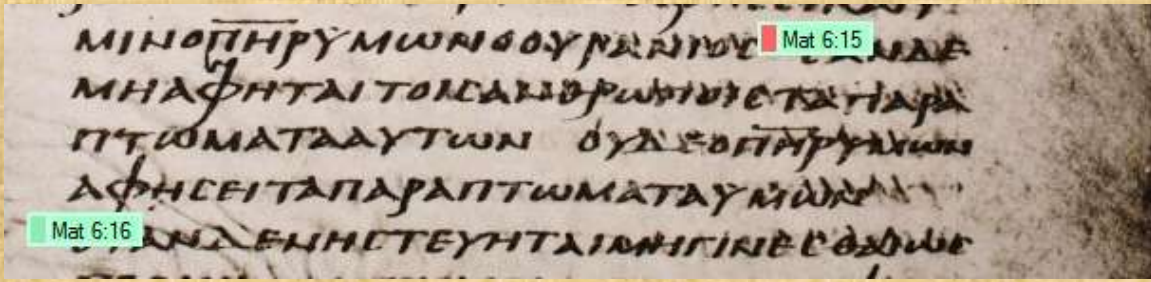 ΜΙΝΟΠΗΡΥΜΩΝΟΟΥΡΑΝΙΟC Mat 6:15 ΕΑΝΔΕ
ΜΗΑΦΗΤΑΙΤΟΙCΑΝΘΡΩΠΟΙCΤΑΠΑΡΑ
ΠΤΩΜΑΤΑΑΥΤΩΝ ΟΥΔΕΟΠΗΡΥΜΩΝ
ΑΦΗCΕΙΤΑΠΑΡΑΠΤΩΜΑΤΑΥΜΩΝ
Mat 6:16 ΑΝΔΕΝΗCΤΕΥΗΤΑΙΜΗΓΙΝΕCΘΑΙΩC